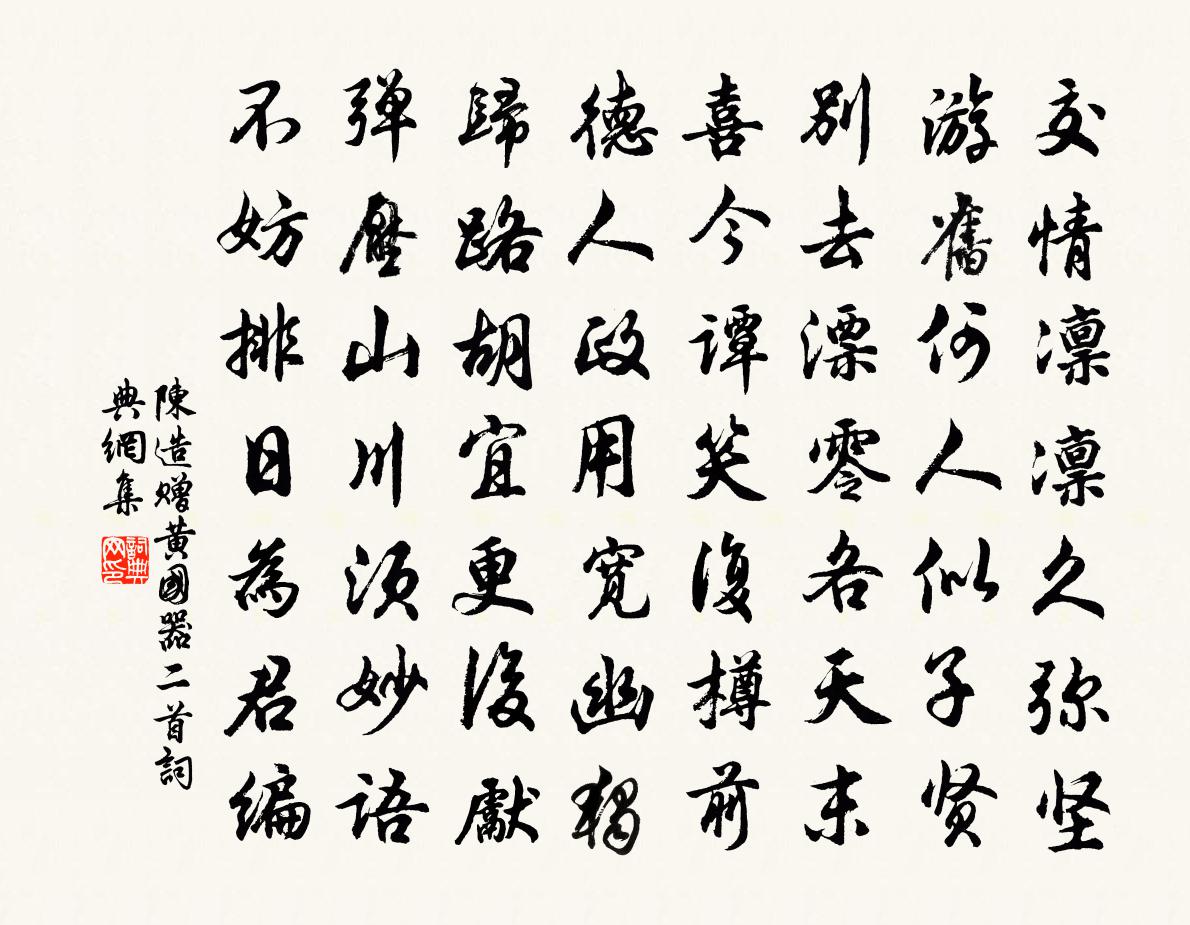 交情凛凛久弥坚
游舊何人似子贤
别去漂零各天末
喜今谭笑復樽前
德人政用寛幽獨
歸路胡宜更後獻
弹壓山川须妙語
不妨排日為君编
陳造赠黄國器二首詞
典網集
詞典